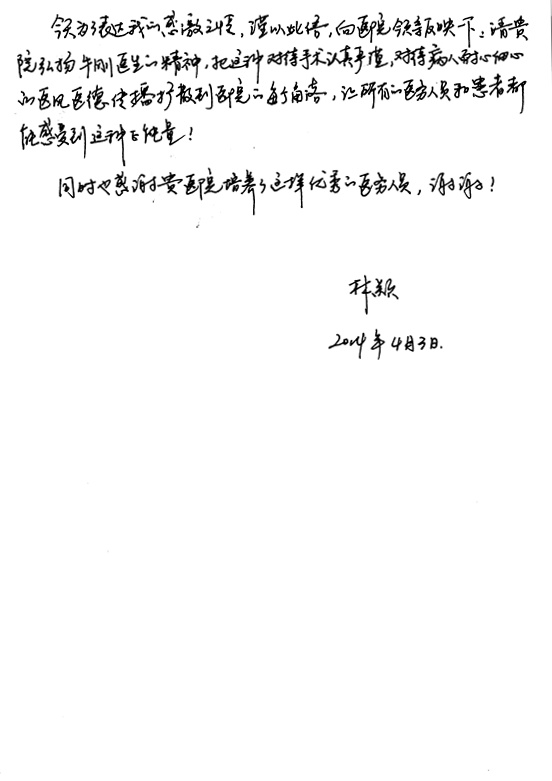 今天为了表达我的感激之情，谨以此信，向医院领导反映一下，请贵
院弘扬牛刚医生的精神，把这种对待手术认真严谨，对待病人耐心细心
的医风医德传播扩散到医院的每个角落，让所有的医务人员和患者都
能感受到这种正能量！
同时也感谢贵医院培养了这样优秀的医务人员，谢谢！
林颖
2014年4月3日.